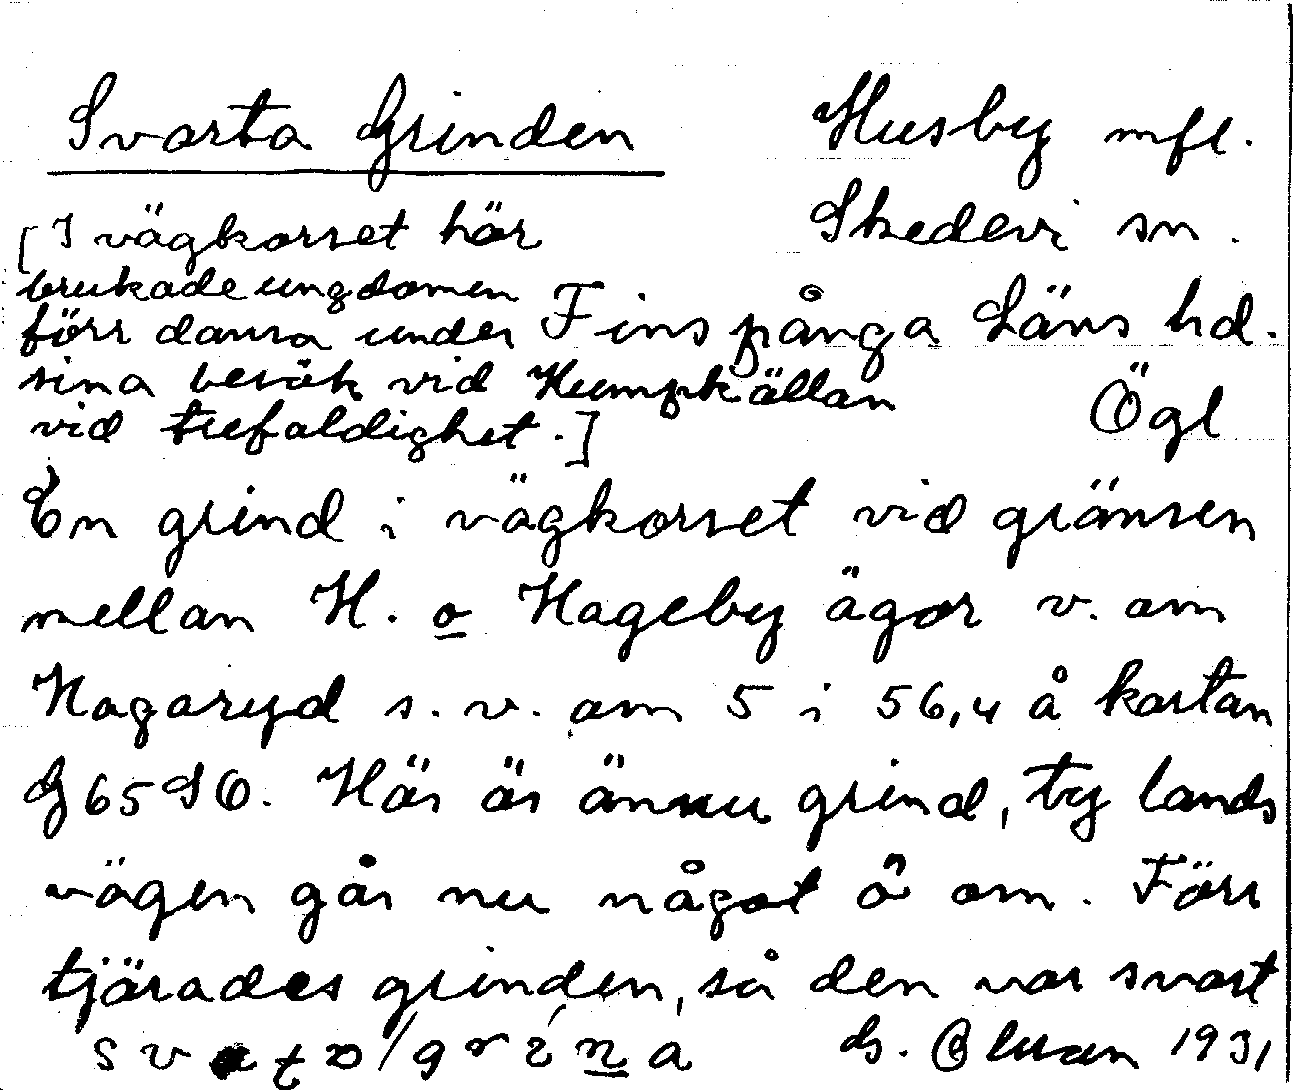 Svarta Grinden
Husby mfl.
Skedevi sn.
Finspånga Läns hd.
Ögl
[I vägkorset här
brukade ungdomen
förr dansa under
sina besök vid Humpkällan
vid trefaldighet.]
En grind i vägkorset vid gränsen
mellan H. o Hageby ägor v. om
Hagaryd s.v. om 5 i 56,4 å kartan
G65SO. Här är ännu grind, ty lands
vägen går nu något ö om. Förr
tjärades grinden, så den var svart
G. 1931